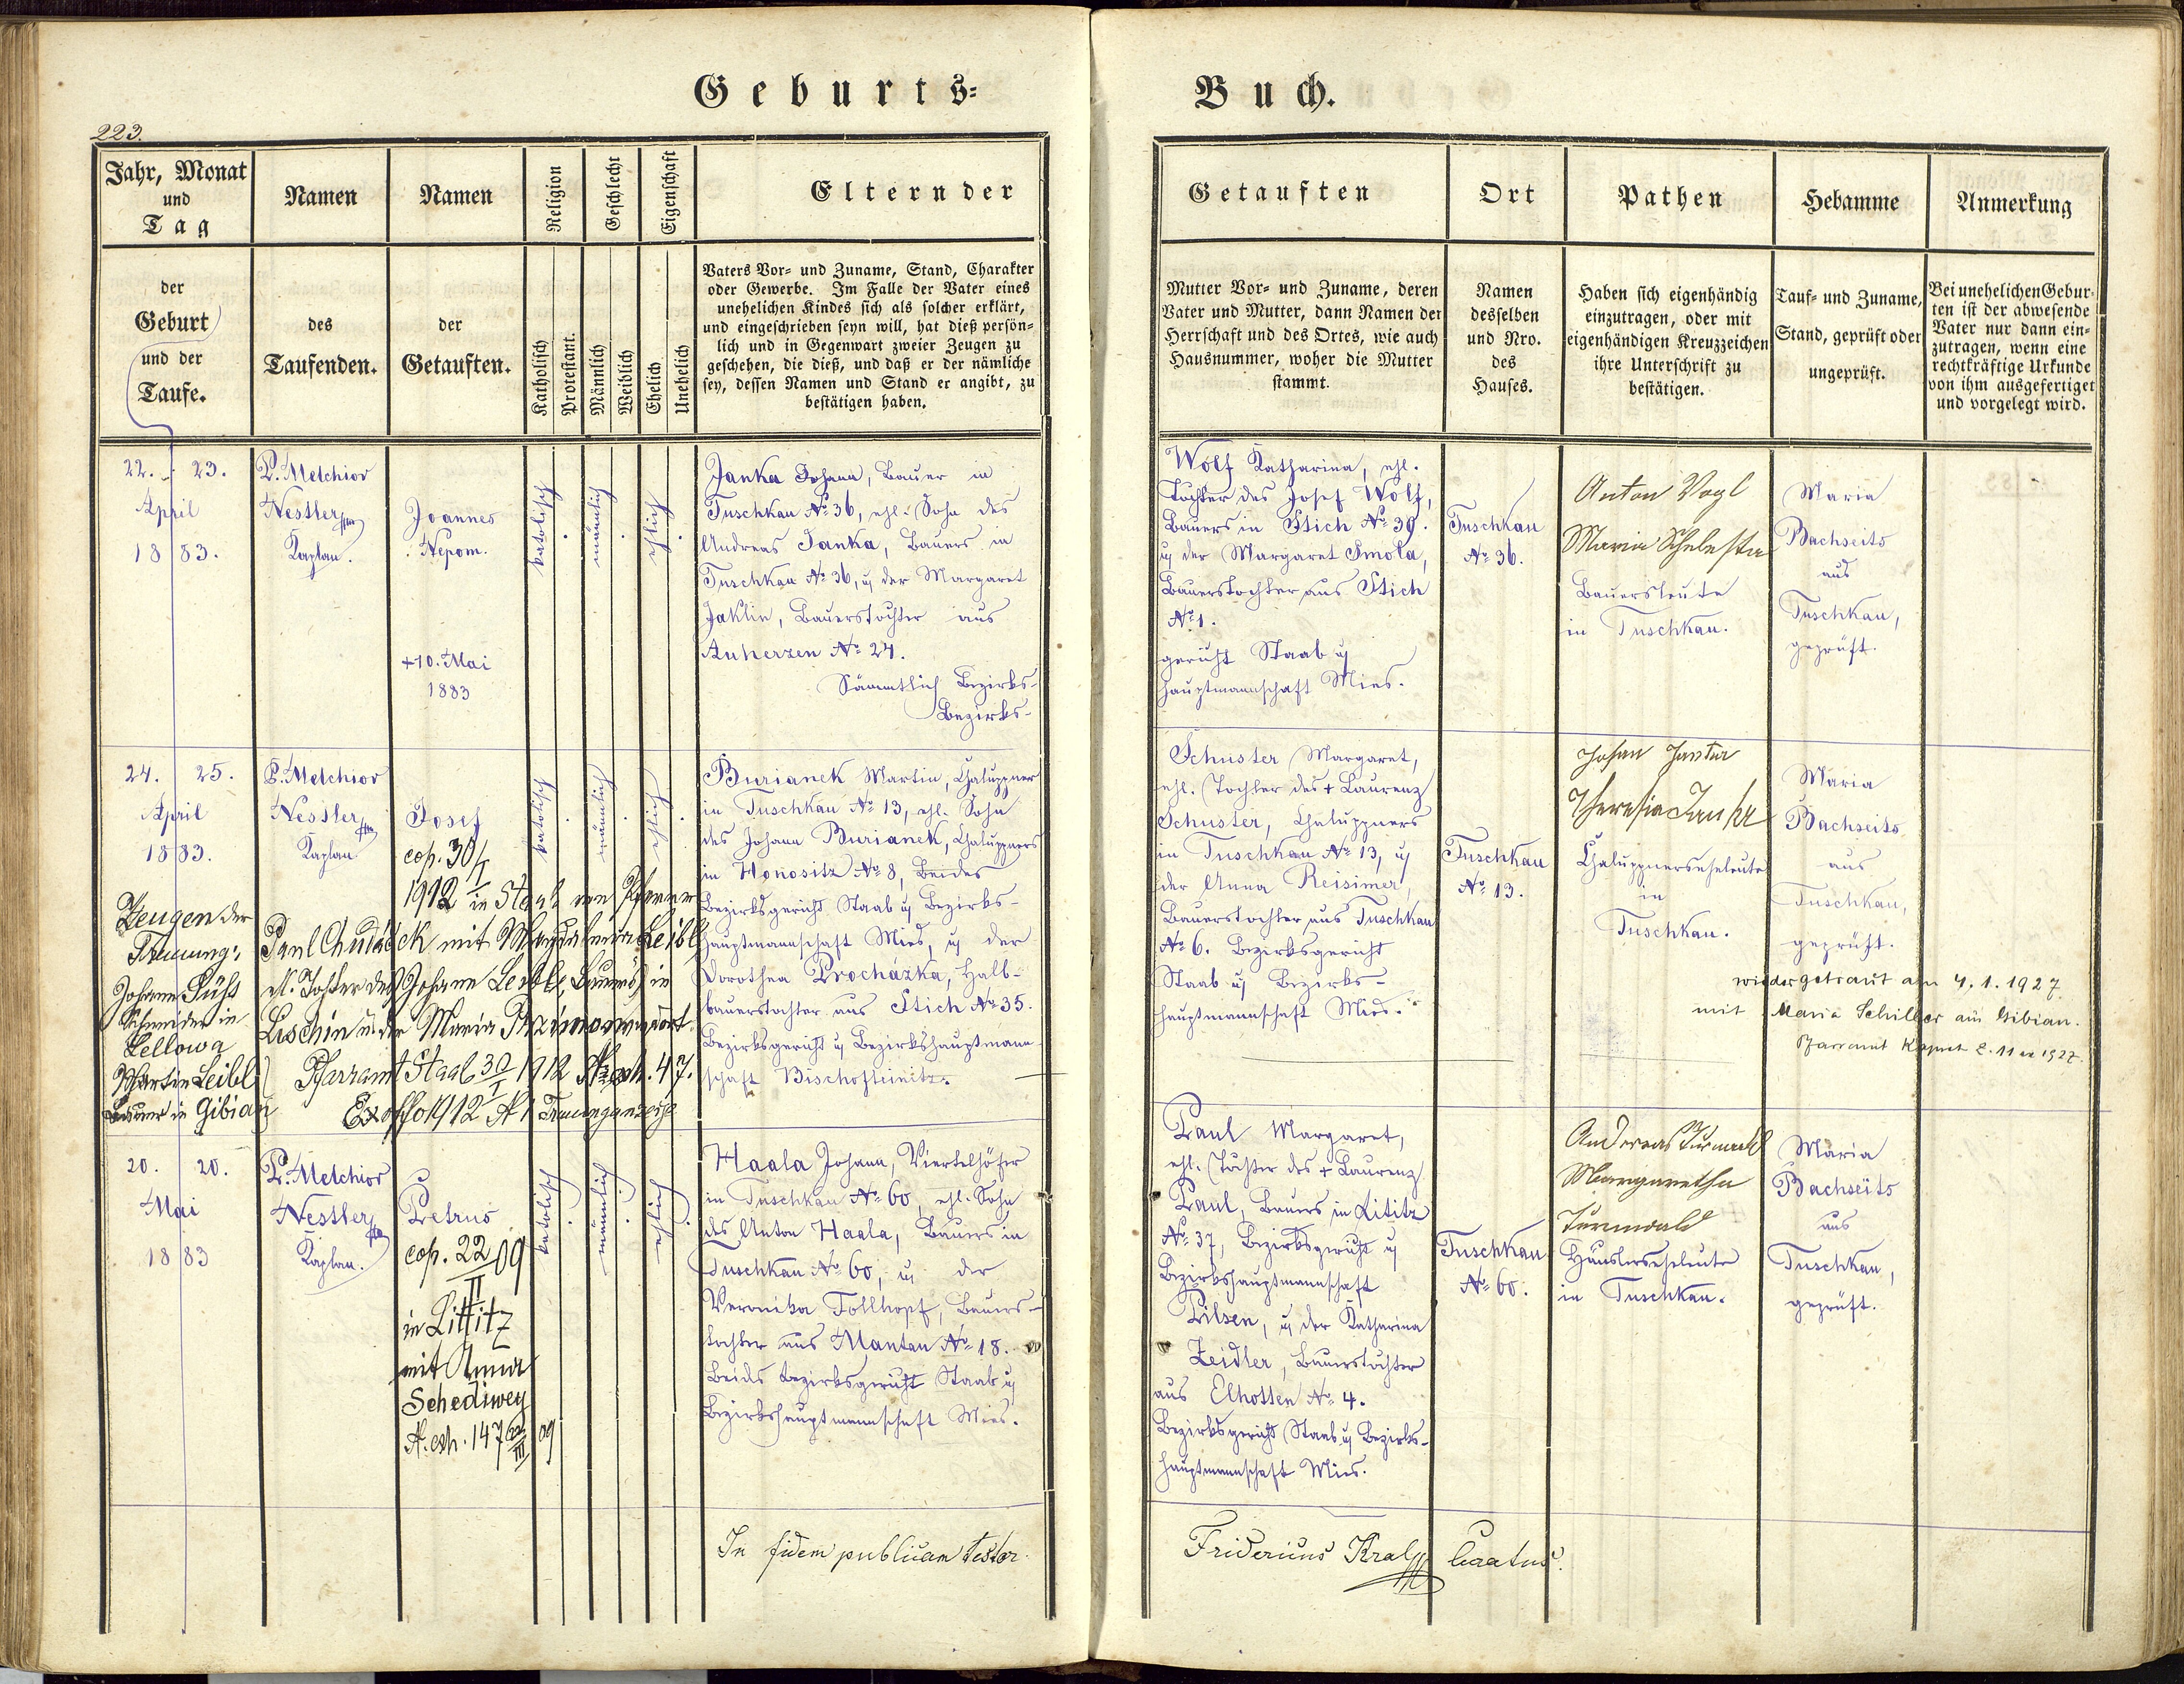 Geburts-
Buch.
223.
Jahr, Monat
und
Tag
Namen
Namen
Religion
Geschlecht
Eigenschaft
Eltern der
der
Geburt
und der
Taufe.
des
Taufenden.
der
Getauften.
Katholisch
Protestant.
Männlich
Weiblich
Ehelich
Unehelich
Vaters Vor- und Zuname, Stand, Charakter
oder Gewerbe. Im Falle der Vater eines
unehelichen Kindes sich als solcher erklärt,
und eingeschrieben seyn will, hat dieß persön-
lich und in Gegenwart zweier Zeugen zu
geschehen, die dieß, und daß er der nämliche
sey, dessen Namen und Stand er angibt, zu
bestätigen haben.
Getauften
Ort
Pathen
Hebamme
Anmerkung
Mutter Vor- und Zuname, deren
Vater und Mutter, dann Namen der
Herrschaft und des Ortes, wie auch
Hausnummer, woher die Mutter
stammt.
Namen
desselben
und Nro.
des
Hauses.
Haben sich eigenhändig
einzutragen, oder mit
eigenhändigen Kreuzzeichen
ihre Unterschrift zu
bestätigen.
Tauf- und Zuname,
Stand, geprüft oder
ungeprüft.
Bei unehelichen Gebur-
ten ist der abwesende
Vater nur dann ein-
zutragen, wenn eine
rechtkräftige Urkunde
von ihm ausgefertiget
und vorgelegt wird.
22. 23.
April
1883.
P. Melchior
Nestler
Kaplan.
Joannes
Nepom.
+10. Mai
1883
katolisch
männlich
ehlich
Janka Johann, Bauer in
Tuschkau No 36, ehl. Sohn des
Andreas Janka, Bauers in
Tuschkau No 36, u der Margaret
Jaklin, Bauerstochter aus
Auherzen No 24.
Sämmtlich Bezirks-
Bezirks-
Wolf Katharina, ehl.
Tochter des Josef Wolf,
Bauers in Stich No 39.
u der Margaret Smola,
Bauerstochter aus Stich
No 1.
gericht Staab u
hauptmannschaft Mies.
Tuschkau
No 36.
Anton Vogl
Maria
Bauersleute
in Tuschkau.
Maria
Bachseits
aus
Tuschkau,
geprüft.
24. 25.
April
1883.
P. Melchior
Nestler
Kaplan
Josef
cop. 30/I
1912 in Staab vom Pfarrer
Paul Chudáček mit Magdalena Leibl
el. Tochter des Johann Leibl, Bauers in
Loschin u. der Maria
Pfarramt Staab 30/I 1912 N. exh. 47.
Ex offo 1912 N 1 Trauungsanzeige
Zeugen der
Trauung:
Johann Süß
Schneider in
Zellowa
Martin Leibl
Bauer in Gibian
katolisch
männlich
ehlich
Burianek Martin, Chaluppner
in Tuschkau No 13, ehl. Sohn
des Johann Burianek, Chaluppners
in Honositz No 8, Beides
Bezirksgericht Staab u Bezirks-
hauptmannschaft Mies, u der
Dorothea Procházka, Halb-
bauerstochter aus Stich No 35.
Bezirksgericht u Bezirkshauptmann-
schaft Bischofteinitz.
Schuster Margaret,
ehl. Tochter des + Laurenz
Schuster, Chaluppners
in Tuschkau No 13, u
der Anna Reisimer,
Bauerstochter aus Tuschkau
No 6. Bezirksgericht
Staab u Bezirks-
hauptmannschaft Mies.
Tuschkau
No 13.
Johan Janka
Theresia Janka
Chaluppnerseheleute
in
Tuschkau.
Maria
Bachseits
aus
Tuschkau,
geprüft.
wiedergetraut am 4. 1. 1927
mit Maria Schiller aus Gibian.
20. 20.
Mai
1883
P. Melchior
Nestler
Kaplan.
Petrus
cop. 22/II 09
in Littitz
mit Anna
Schediwey
N. exh. 147 /III 09
katolisch
männlich
ehlich
Haala Johann, Viertelhöfer
in Tuschkau No 60, ehl. Sohn
des Anton Haala, Bauers in
Tuschkau No 60, u der
Veronika Tollhopf, Bauers-
tochter aus Mantau No 18.
Beides Bezirksgericht Staab u
Bezirkshauptmannschaft Mies.
Paul Margaret,
ehl. Tochter des + Laurenz
Paul, Bauers in Lititz
No 37, Bezirksgericht u
Bezirkshauptmannschaft
Pilsen, u der Katharina
Zeidler, Bauerstochter
aus Elhotten No 4.
Bezirksgericht Staab u Bezirks-
hauptmannschaft Mies.
Tuschkau
No 60.
Andreas Turnwald
Margaretha
Turnwald
Häuslerseheleute
in Tuschkau.
Maria
Bachseits
aus
Tuschkau,
geprüft.
In fidem publicam testor.
Fridericus Kral Curatus.